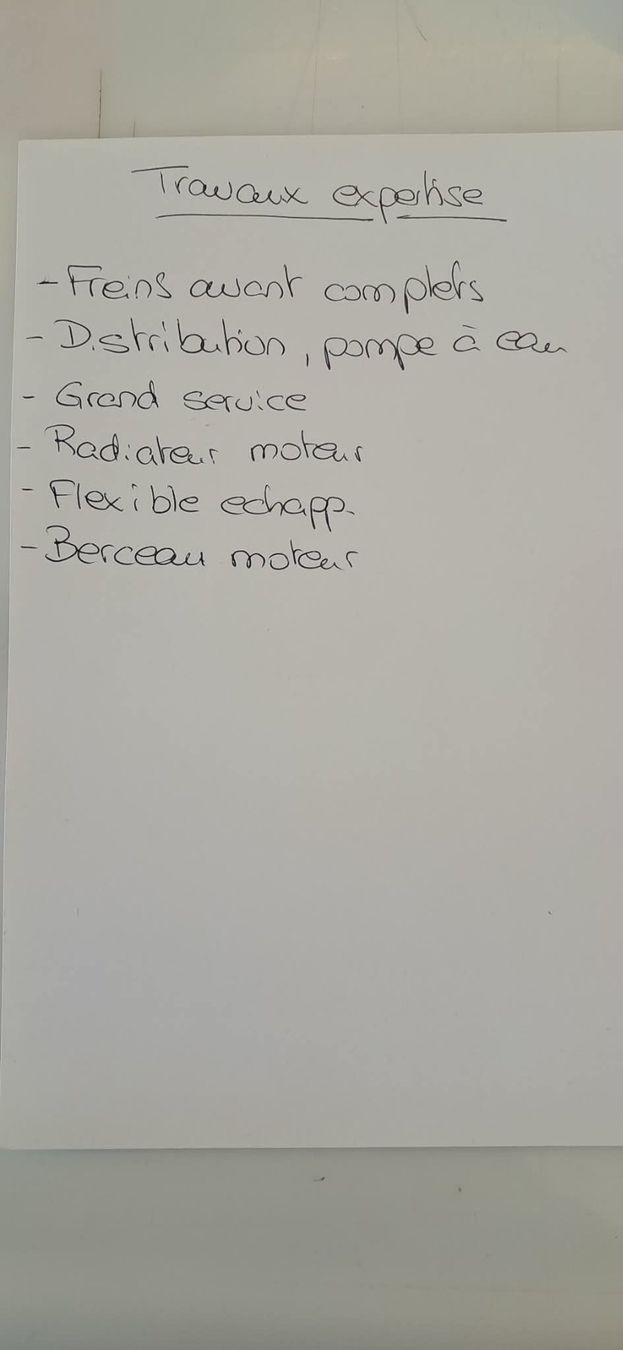 Travaux expertise
- Freins avant complets
- Distribution, pompe à eau
- Grand service
- Radiateur moteur
- Flexible echapp.
- Berceau moteur